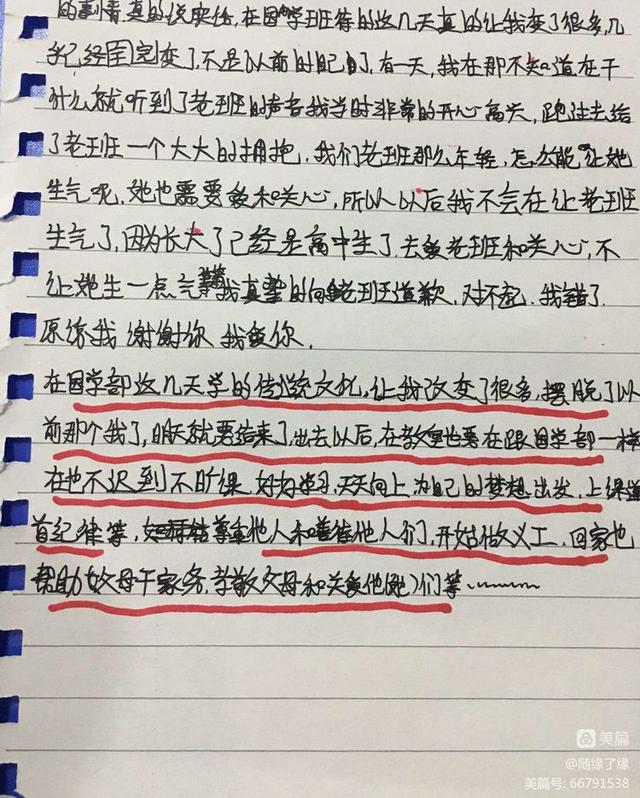 的事情真的说实话,在国学班待的这几天真的让我变了很多,几
乎已经完变了,不是以前的自己的,有一天,我在那不知道在干
什么就听到了老班的声音我当时非常的开心高兴,跑过去给
了老班一个大大的拥抱,我们老班那么年轻,怎么能让她
生气呢,她也需要爱和关心,所以以后我不会在让老班
生气了,因为长大了已经是高中生了,去爱老班和关心,不
让她生一点气我真挚的向老班道歉,对不起,我错了.
原谅我 谢谢你 我爱你.
在国学部这几天学的传统文化,让我改变了很多,摆脱了以
前那个我了,明天就要结束了,出去以后,在教室也要在跟国学部一样
在也不迟到不旷课,好好学习,天天向上,为自己的梦想出发,上课遵
首纪律等,尊重他人和善待他人们,开始做义工,回家也
帮助父母干家务,孝敬父母和关爱他(她)们等……
美篇
@随缘了缘
美篇号: 66791538